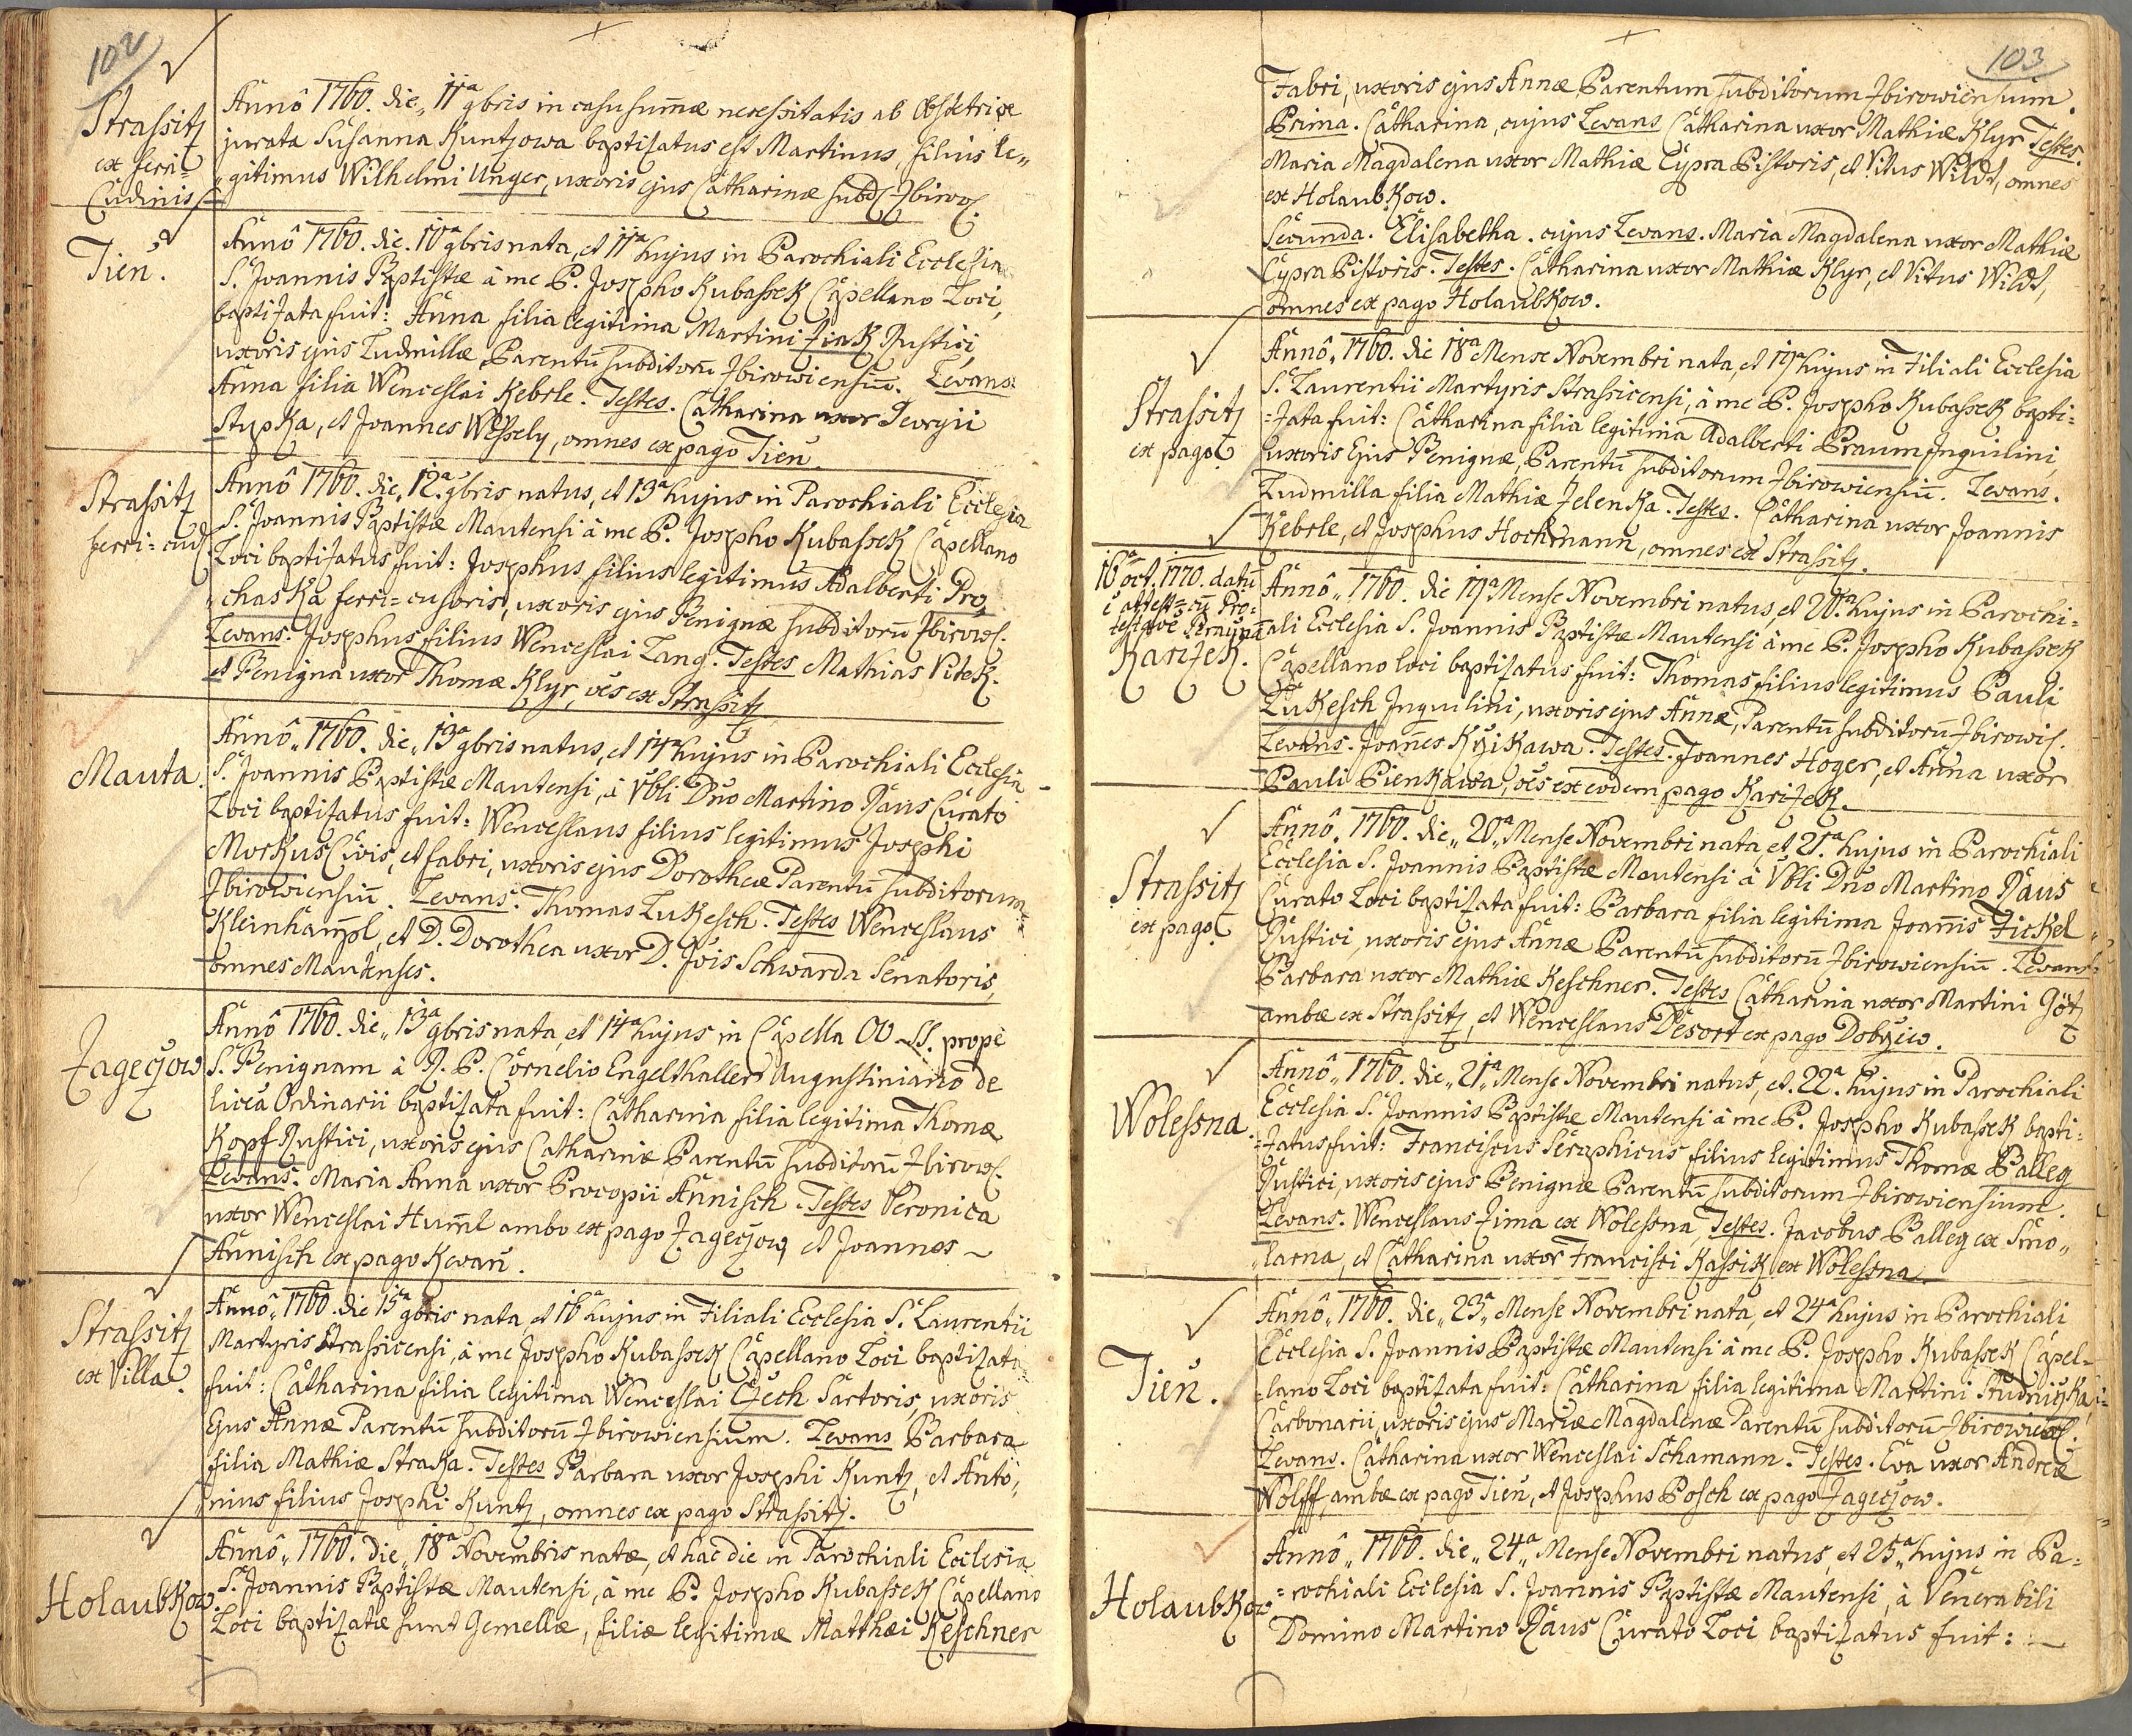 102
Strassitz
ex ferri=
Cudinis
Annô 1760. die „ 11ª 9bris in casu sum̄æ necessitatis ab Obstetrice
jurata Susanna Kuntzowa baptizatus est Martinus, filius le„
„gitimus Wilhelmi Unger, uxoris ejus Catharinæ subd. Zbirov.
Tien.
Annô 1760. die. 10ª 9bris nata, et 11ª hujus in Parochiali Ecclesia
S. Joannis Baptistæ à me P. Josepho Kubassek Capellano Loci,
baptizata fuit: Anna filia legitima Martini Ziak Rustici
uxoris ejus Ludmillæ, Parentū subditorū Zbirowiensiū. Levans
Anna filia Wenceslai Keberle. Testes. Catharina uxor Georgii
Stupka, et Joannes Wessely, omnes ex pago Tien.
Strassitz
ferri=cud
Annô 1760. die „ 12ª 9bris natus, et 13ª hujus in Parochiali Ecclesia
S. Joannis Baptistæ Mautensi à me P. Josepho Kubassek Capellano
Loci baptizatus fuit: Josephus filius legitimus Adalberti Pro„
„chaska ferri=cusoris, uxoris ejus Benignæ subditorū Zbirow.
Levans. Josephus filius Wenceslai Lang. Testes Mathias Vitek.
et Benigna uxor Thomæ Klyr, oēs ex Strassitz
Mauta.
Annô „ 1760. die „ 13ª 9bris natus, et 14ª hujus in Parochiali Ecclesia
S. Joannis Baptistæ Mautensi, à Vbli Dno Martino Raus Curato
Loci baptizatus fuit: Wenceslaus filius legitimus Josephi
Morkus Civis, et fabri, uxoris ejus Dorotheæ Parentū subditorum
Zbirowiensiū. Levans. Thomas Lukesch. Testes Wenceslaus
Kleinhampl, et D. Dorothea uxor D. Jōis Schwarda Senatoris,
omnes Mautenses.
Zageczow
Annô 1760. die „ 13ª 9bris nata, et 14ª hujus in Capella OO. SS. prope
S. Benignam à R. P. Cornelio Engelthaller Augustiniano de
licea Ordinarii baptizata fuit: Catharina filia legitima Thomæ
Kopf Rustici, uxoris ejus Catharinæ Parentū subditorū Zbirow.
Levans. Maria Anna uxor Procopii Annisch. Testes Veronica
uxor Wenceslai Hum̄l ambo ex pago Zageczow, et Joannes ~
Annisch ex pago Kwan.
Strassitz
ex Villa.
Annô „ 1760. die 15ª 9bris nata, et 16ª hujus in Filiali Ecclesia S. Laurentii
Martyris Strassicensi, à me Josepho Kubassek Capellano Loci baptizata
fuit: Catharina filia legitima Wenceslai Czech Sartoris, uxoris
Ejus Annæ Parentū subditorū Zbirowiensium. Levans Barbara
filia Mathiæ Straka. Testes Barbara uxor Josephi Kuntz, et Anto„
„nius filius Josephi Kuntz, omnes ex pago Strassitz.
Holaubkow.
Annô „ 1760. die „ 18ª Novembris natæ, et hac die in Parochiali Ecclesia
S. Joannis Baptistæ Mautensi, à me P. Josepho Kubassek Capellano
Loci baptizatæ sunt Gemellæ, filiæ legitimæ Matthæi Keschner
103
Fabri, uxoris ejus Annæ Parentum subditorum Zbirowiensium.
Prima. Catharina, cujus Levans Catharina uxor Mathiæ Klyr Testes.
Maria Magdalena uxor Mathiæ Cypra Pistoris, et Vitus Wildt, omnes
ex Holaubkow.
Secunda. Elisabetha. cujus Levans. Maria Magdalena uxor Mathiæ
Cypra Pistoris. Testes. Catharina uxor Mathiæ Klyr, et Vitus Wildt,
omnes ex pago Holaubkow.
Strassitz
ex pago
Annô „ 1760. die 18ª Mense Novembri nata, et 19ª hujus in Filiali Ecclesia
S. Laurentii Martyris Strassicensi, à me P. Josepho Kubassek bapti=
=zata fuit: Catharina filia legitima Adalberti Praum Inquilini,
uxoris Ejus Benignæ, Parentū subditorum Zbirowiensiū. Levans.
Ludmilla filia Mathiæ Jelenka. Testes. Catharina uxor Joannis
Keberle, et Josephus Hochmann, omnes ex Strassitz.
16ª oct. 1770. datū
Karizek.
Annô „ 1760. die 19ª Mense Novembri natus, et 20ª hujus in Parochi=
ali Ecclesia S. Joannis Baptistæ Mautensi à me P. Josepho Kubassek
Capellano loci baptizatus fuit: Thomas filius legitimus Pauli
Lukesch Inquilini, uxoris ejus Annæ, Parentū subditorū Zbirowi.
Levans. Joannes Kyikawa. Testes. Joannes Hoger, et Anna uxor
Pauli Pienkawa, oēs ex eodem pago Karizek.
Strassitz
ex pago
Annô „ 1760. die „ 20ª Mense Novembri nata, et 21ª hujus in Parochiali
Ecclesia S. Joannis Baptistæ Mautensi à Vbli Dno Martino Raus
Curato Loci baptizata fuit: Barbara filia legitima Joannis Fickel
Rustici, uxoris ejus Annæ Parentū subditorū Zbirowiensiū. Levans
Barbara uxor Mathiæ Keschner. Testes Catharina uxor Martini Götz
ambæ ex Strassitz, et Wenceslaus Desort ex pago Dobrziw.
Wolessna.
Annô „ 1760. die „ 21ª Mense Novembri natus, et 22ª hujus in Parochiali
Ecclesia S. Joannis Baptistæ Mautensi à me P. Josepho Kubassek bapti=
=zatus fuit: Franciscus Seraphicus filius legitimus Thomæ Palleg
Rustici, uxoris ejus Benignæ Parentū subditorum Zbirowiensium.
Levans. Wenceslaus Zima ex Wolessna, Testes. Jacobus Palleg ex Smo„
„larna, et Catharina uxor Francisci Kassik ex Wolessna.
Tien.
Annô „ 1760. die „ 23ª Mense Novembri nata, et 24ª hujus in Parochiali
Ecclesia S. Joannis Baptistæ Mautensi à me P. Josepho Kubassek Capel=
=lano Loci baptizata fuit: Catharina filia legitima Martini Studniczka
Carbonarii, uxoris ejus Mariæ Magdalenæ Parentū subditorū Zbirowien.
Levans. Catharina uxor Wenceslai Schamann. Testes. Eva uxor Andreæ
Wolff, ambæ ex pago Tien, et Josephus Posch ex pago Zageczow.
Holaubkow
Annô „ 1760. die „ 24ª Mense Novembri natus, et 25ª hujus in Pa=
=rochiali Ecclesia S. Joannis Baptistæ Mautensi, à Venerabili
Domino Martino Raus Curato Loci baptizatus fuit: —